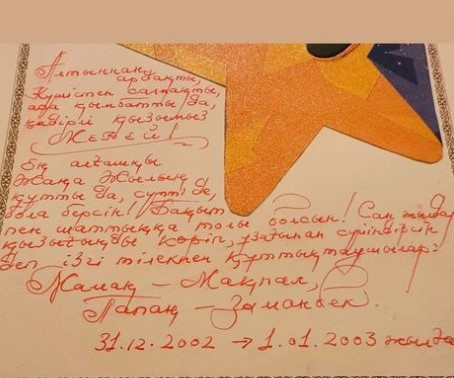 Алтыннан ардақты,
Күмістен салмақты,
ада қымбатты да,
қадірлі қызымыз
Жекей!
Ең алғашқы
Жаңа Жылың
құтты да, сүтті де,
бола берсін! Бақыт
пен шаттыққа толы болсын! Сан жылдар
қызығыңды көріп, ұзағынан сүйіндірсін
деп ізгі тілекпен құттықтаушылар:
Мамаң – Мақпал,
Папаң – Заманбек.
31.12.2002 → 1.01.2003 жылда